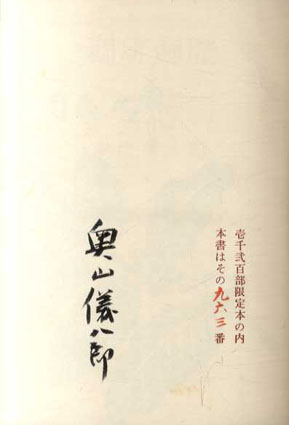 壱千弐百部限定本の内
本書はその九六三番
奥山儀八郎